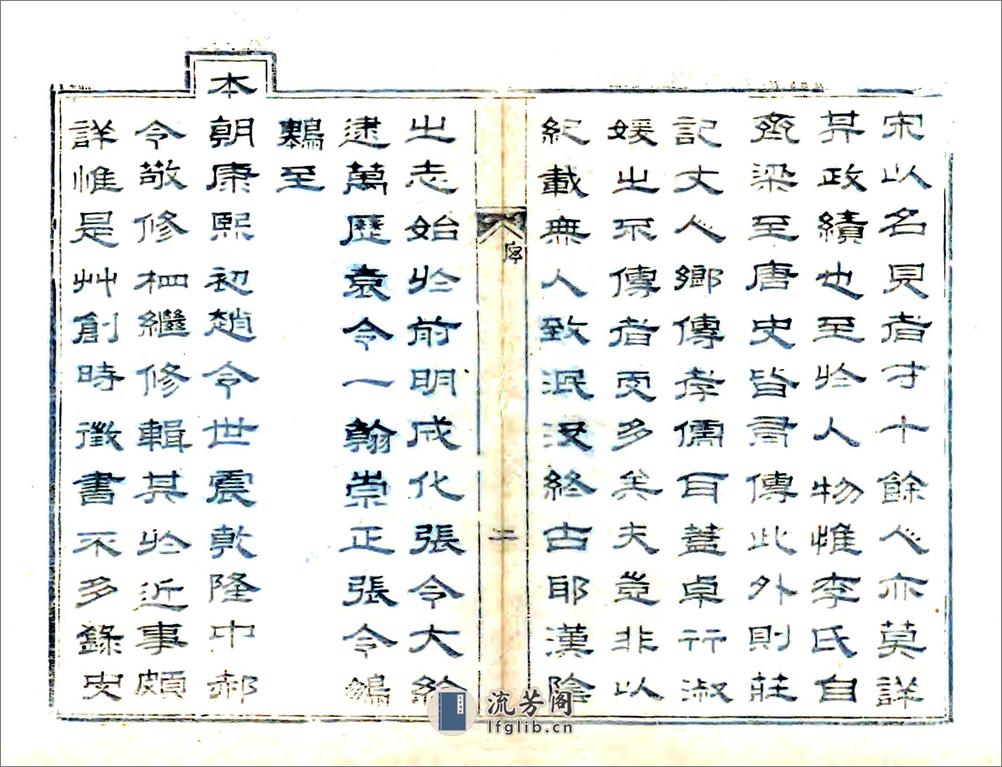 宋以名見者才十餘人亦莫詳
其政績也至於人物惟李氏自
齊梁至唐史皆有傳此外則莊
記丈人鄉傳孝儒耳蓋卓行淑
媛之不傳者更多矣夫豈非以
紀載無人致泯沒終古耶漢陰
之志始於前明成化張令大綸
逮萬歷袁令一翰崇正張令鵷
鶈至
本
朝康熙初趙令世震乾隆中郝
令敬修相繼修輯其於近事頗
詳惟是艸創時徵書不多錄史
序
二
流芳阁
lfglib.cn